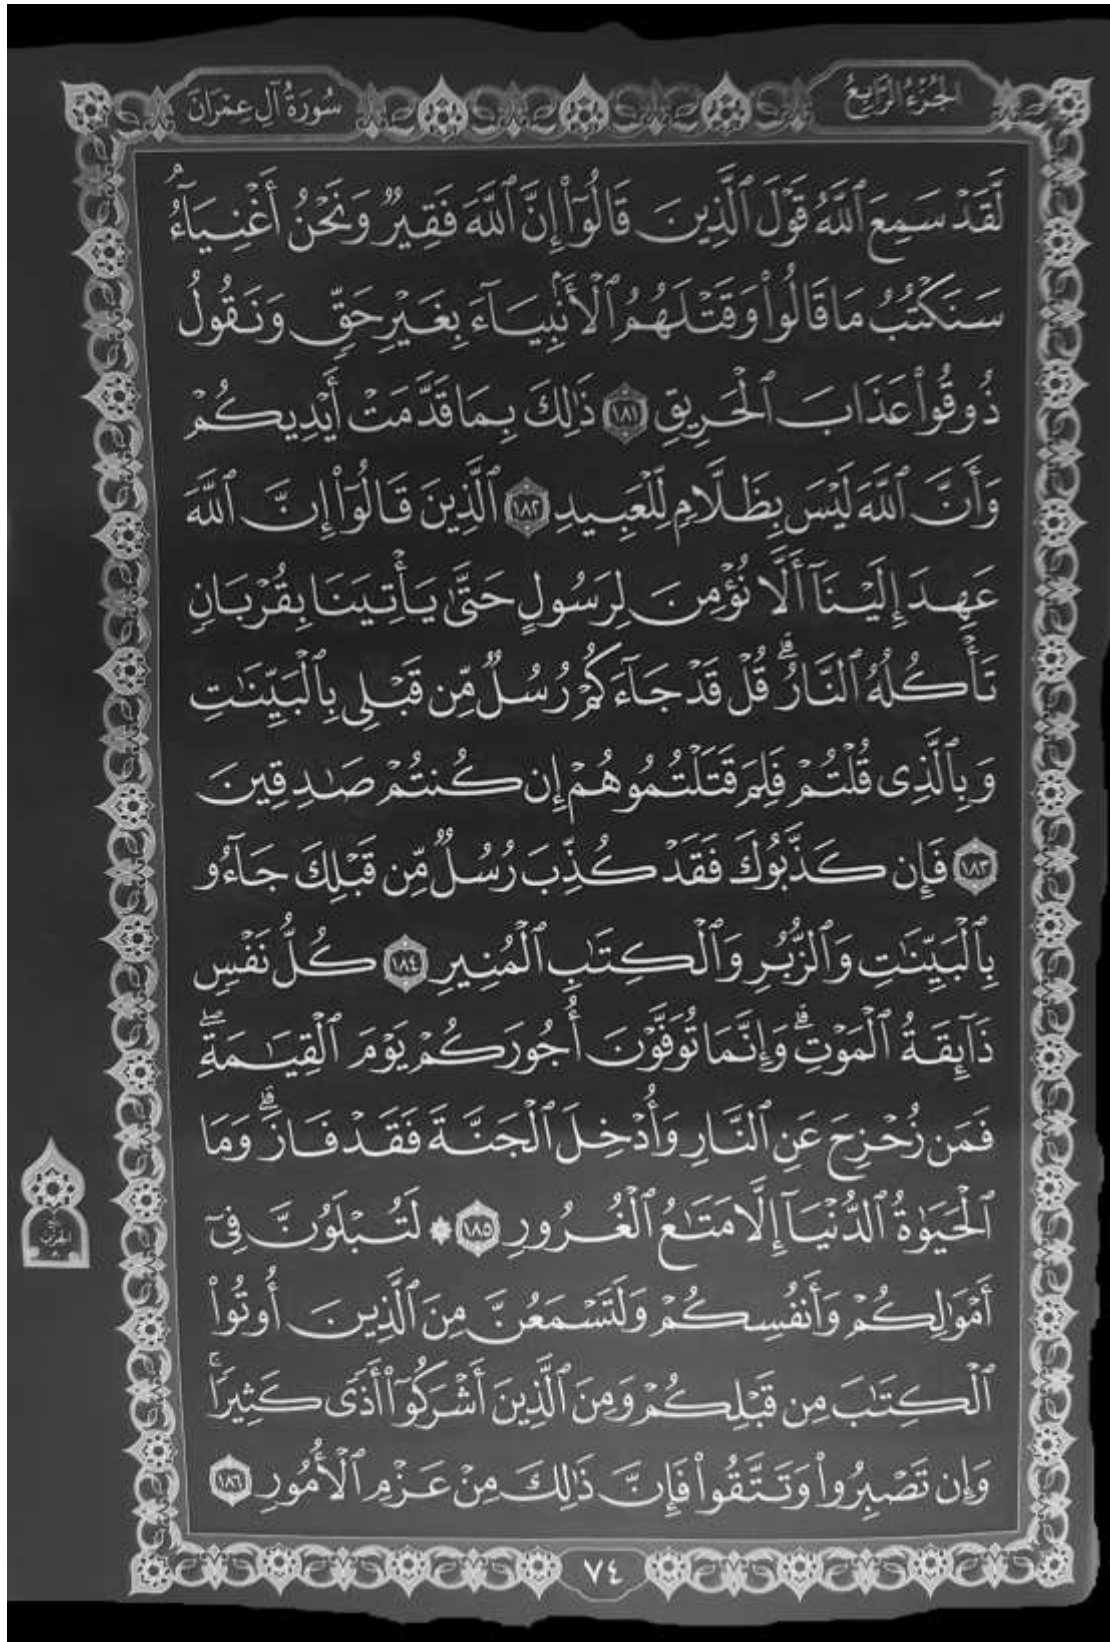 الجُزْءُ الرَّابِعُ
سُورَةُ آلِ عِمْرَانَ
لَّقَدْ سَمِعَ ٱللَّهُ قَوْلَ ٱلَّذِينَ قَالُوٓا۟ إِنَّ ٱللَّهَ فَقِيرٌ وَنَحْنُ أَغْنِيَآءُ ۘ
سَنَكْتُبُ مَا قَالُوا۟ وَقَتْلَهُمُ ٱلْأَنۢبِيَآءَ بِغَيْرِ حَقٍّ وَنَقُولُ
ذُوقُوا۟ عَذَابَ ٱلْحَرِيقِ ١٨١ ذَٰلِكَ بِمَا قَدَّمَتْ أَيْدِيكُمْ
وَأَنَّ ٱللَّهَ لَيْسَ بِظَلَّامٍ لِّلْعَبِيدِ ١٨٢ ٱلَّذِينَ قَالُوٓا۟ إِنَّ ٱللَّهَ
عَهِدَ إِلَيْنَآ أَلَّا نُؤْمِنَ لِرَسُولٍ حَتَّىٰ يَأْتِيَنَا بِقُرْبَانٍ
تَأْكُلُهُ ٱلنَّارُ ۗ قُلْ قَدْ جَآءَكُمْ رُسُلٌ مِّن قَبْلِى بِٱلْبَيِّنَٰتِ
وَبِٱلَّذِى قُلْتُمْ فَلِمَ قَتَلْتُمُوهُمْ إِن كُنتُمْ صَٰدِقِينَ
١٨٣ فَإِن كَذَّبُوكَ فَقَدْ كُذِّبَ رُسُلٌ مِّن قَبْلِكَ جَآءُو
بِٱلْبَيِّنَٰتِ وَٱلزُّبُرِ وَٱلْكِتَٰبِ ٱلْمُنِيرِ ١٨٤ كُلُّ نَفْسٍ
ذَآئِقَةُ ٱلْمَوْتِ ۗ وَإِنَّمَا تُوَفَّوْنَ أُجُورَكُمْ يَوْمَ ٱلْقِيَٰمَةِ ۖ
فَمَن زُحْزِحَ عَنِ ٱلنَّارِ وَأُدْخِلَ ٱلْجَنَّةَ فَقَدْ فَازَ ۗ وَمَا
ٱلْحَيَوٰةُ ٱلدُّنْيَآ إِلَّا مَتَٰعُ ٱلْغُرُورِ ١٨٥ ۞ لَتُبْلَوُنَّ فِىٓ
أَمْوَٰلِكُمْ وَأَنفُسِكُمْ وَلَتَسْمَعُنَّ مِنَ ٱلَّذِينَ أُوتُوا۟
ٱلْكِتَٰبَ مِن قَبْلِكُمْ وَمِنَ ٱلَّذِينَ أَشْرَكُوٓا۟ أَذًى كَثِيرًا ۚ
وَإِن تَصْبِرُوا۟ وَتَتَّقُوا۟ فَإِنَّ ذَٰلِكَ مِنْ عَزْمِ ٱلْأُمُورِ ١٨٦
٧٤